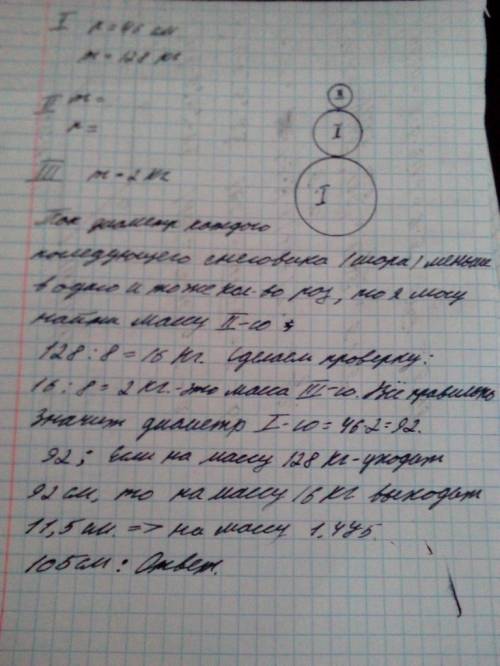 I r = 46 см
m = 128 кг
II m =
r =
III m = 2 кг
I
I
Так диаметр каждого
последующего снеговика (шара) меньше
в одно и тоже кол-во раз, то я могу
найти массу II-го:
128 : 8 = 16 кг. Сделаем проверку:
16 : 8 = 2 кг. - это масса III-го. Всё правильно
Значит диаметр I-го = 46·2 = 92.
92; Если на массу 128 кг - уходит
92 см, то на массу 16 кг выходит
11,5 см. => на массу 1,4375
105 см: Ответ.